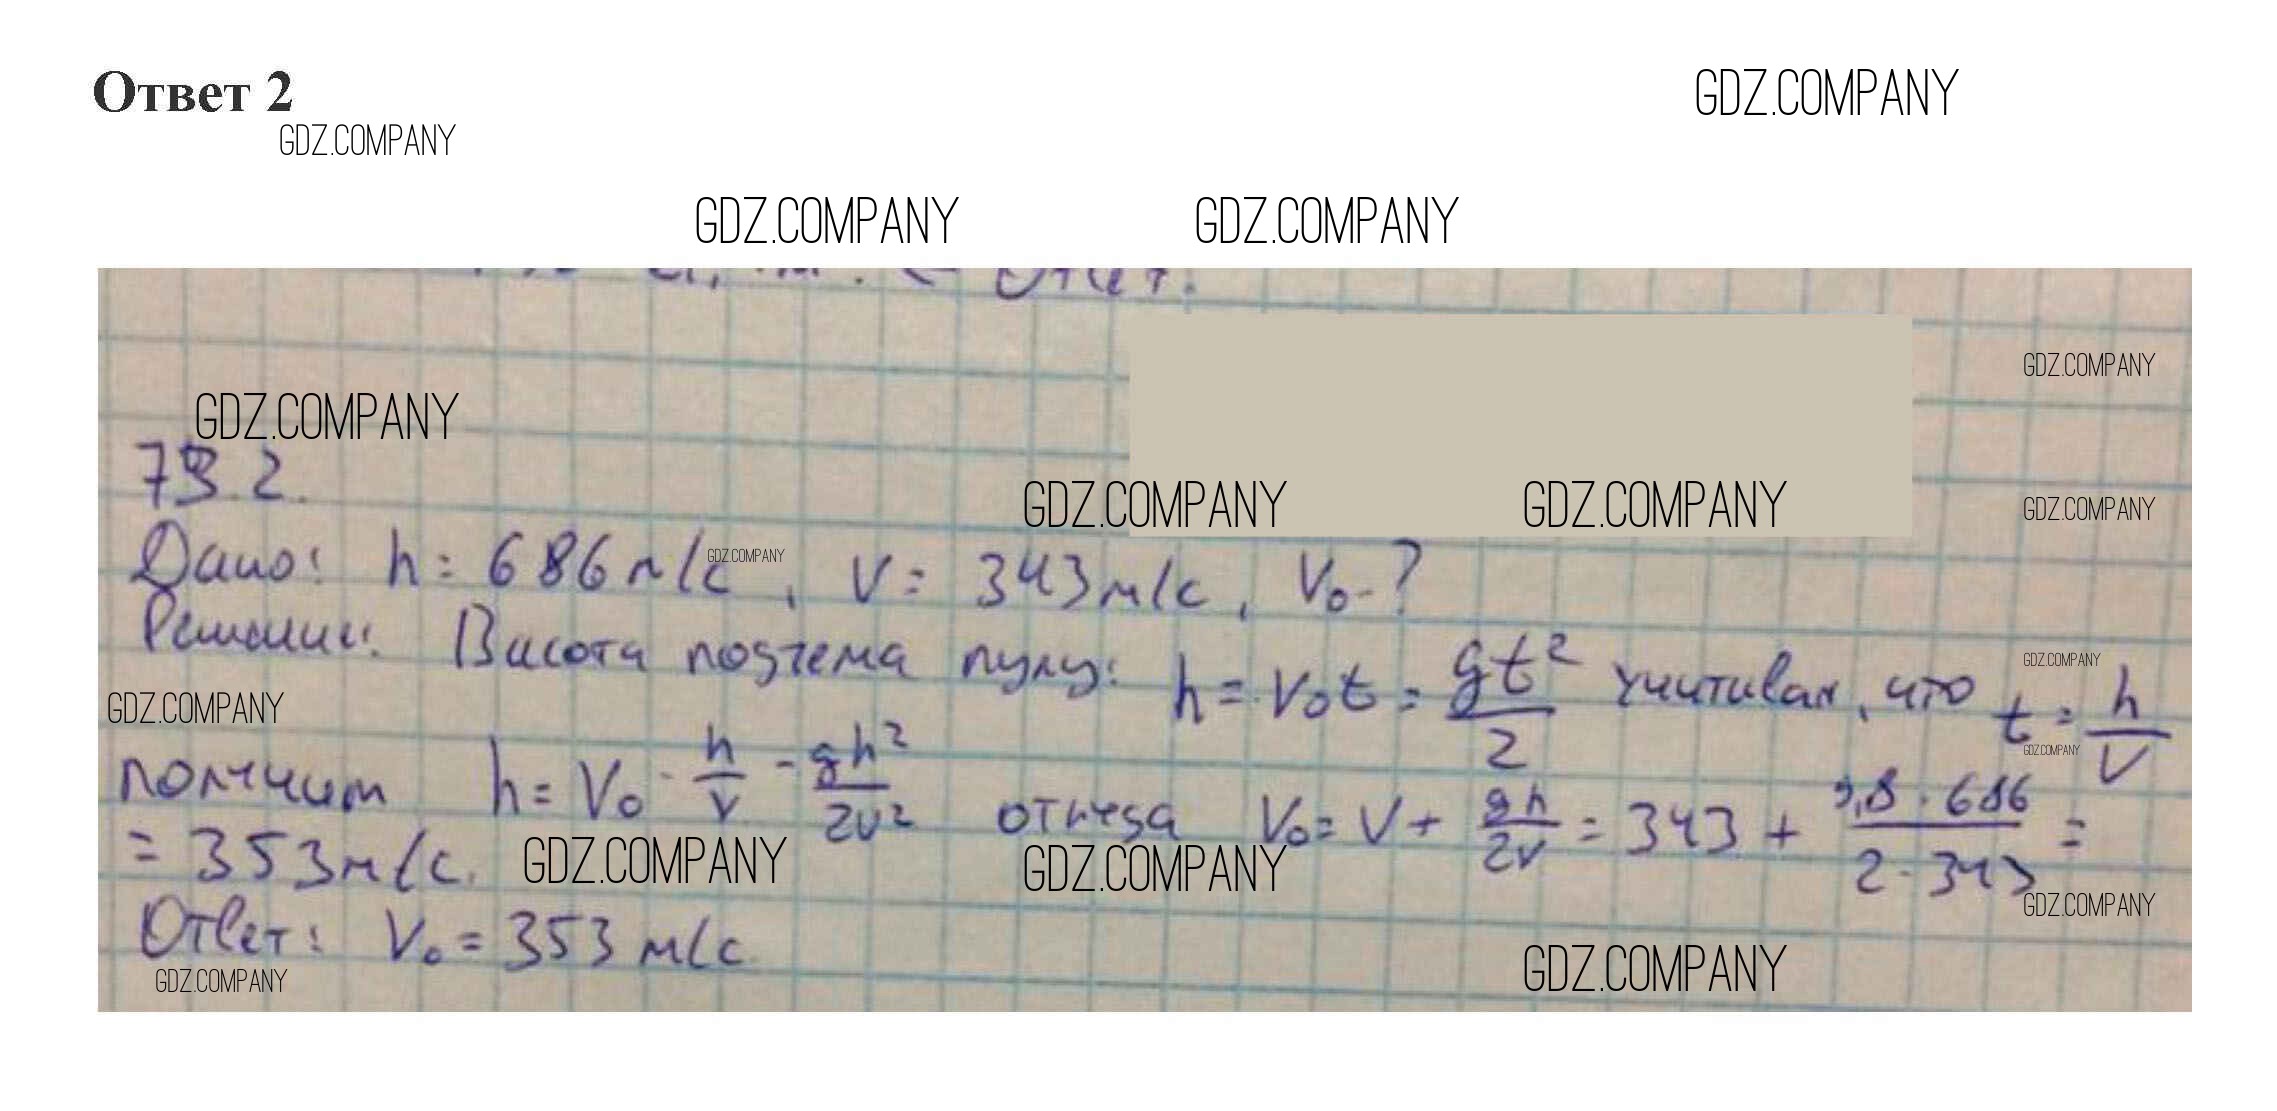 Ответ 2
GDZ.COMPANY
GDZ.COMPANY
GDZ.COMPANY GDZ.COMPANY
Ответ.
GDZ.COMPANY
GDZ.COMPANY
73.2.
GDZ.COMPANY GDZ.COMPANY GDZ.COMPANY
Дано: h = 686 м/с, V = 343 м/с, V₀ - ?
GDZ.COMPANY
Решение: Висота подъема пули: h = V₀t = gt²/2 учитивая, что t = h/V
GDZ.COMPANY
GDZ.COMPANY
GDZ.COMPANY
получим h = V₀ · h/v - gh²/2v² откуда V₀ = V + gh/2v = 343 + 9,8 · 686/2 · 343 =
= 353 м/с.
GDZ.COMPANY GDZ.COMPANY
GDZ.COMPANY
Ответ: V₀ = 353 м/с.
GDZ.COMPANY GDZ.COMPANY